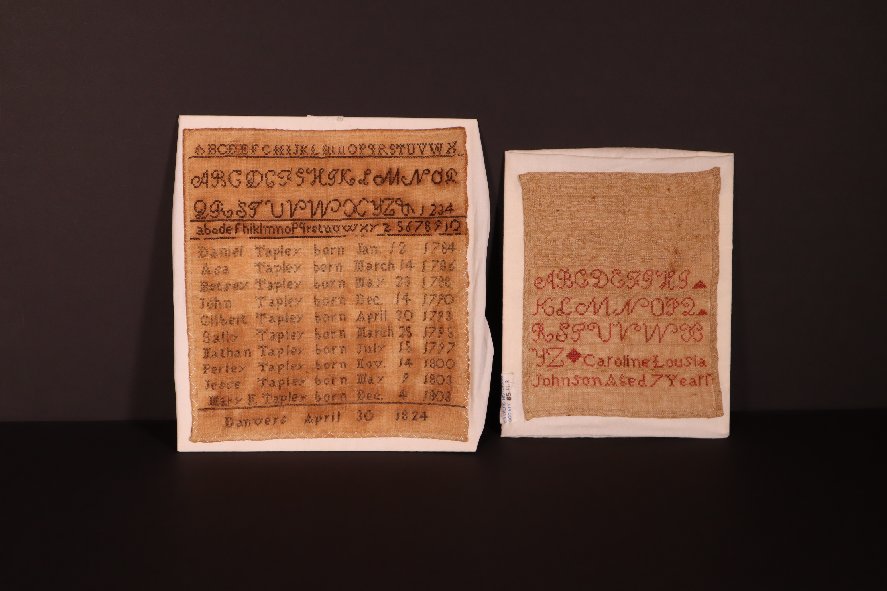 ABCDEFGHIJKLMNOPQRSTUVWX
ABCDEFGHIKLMNOP
QRSTUVWXYZ& 1234
abcdefhiklmnopqrstuvwxyz 5678910
Daniel Tapley born Jan. 12 1784
Asa Tapley born March 14 1786
Tapley born May 1788
John Tapley born Dec. 14 1790
Gilbert Tapley born April 20 1793
Sally Tapley born March 25 1795
Nathan Tapley born July 15 1797
Perley Tapley born Nov. 14 1800
Jesse Tapley born May 1803
Mary E Tapley born Dec. 4 1808
Danvers April 30 1824
ABCDEFGHI
KLMNOPQ
RSTUVWX
YZ Caroline Lousia
Johnson Aged 7 Years